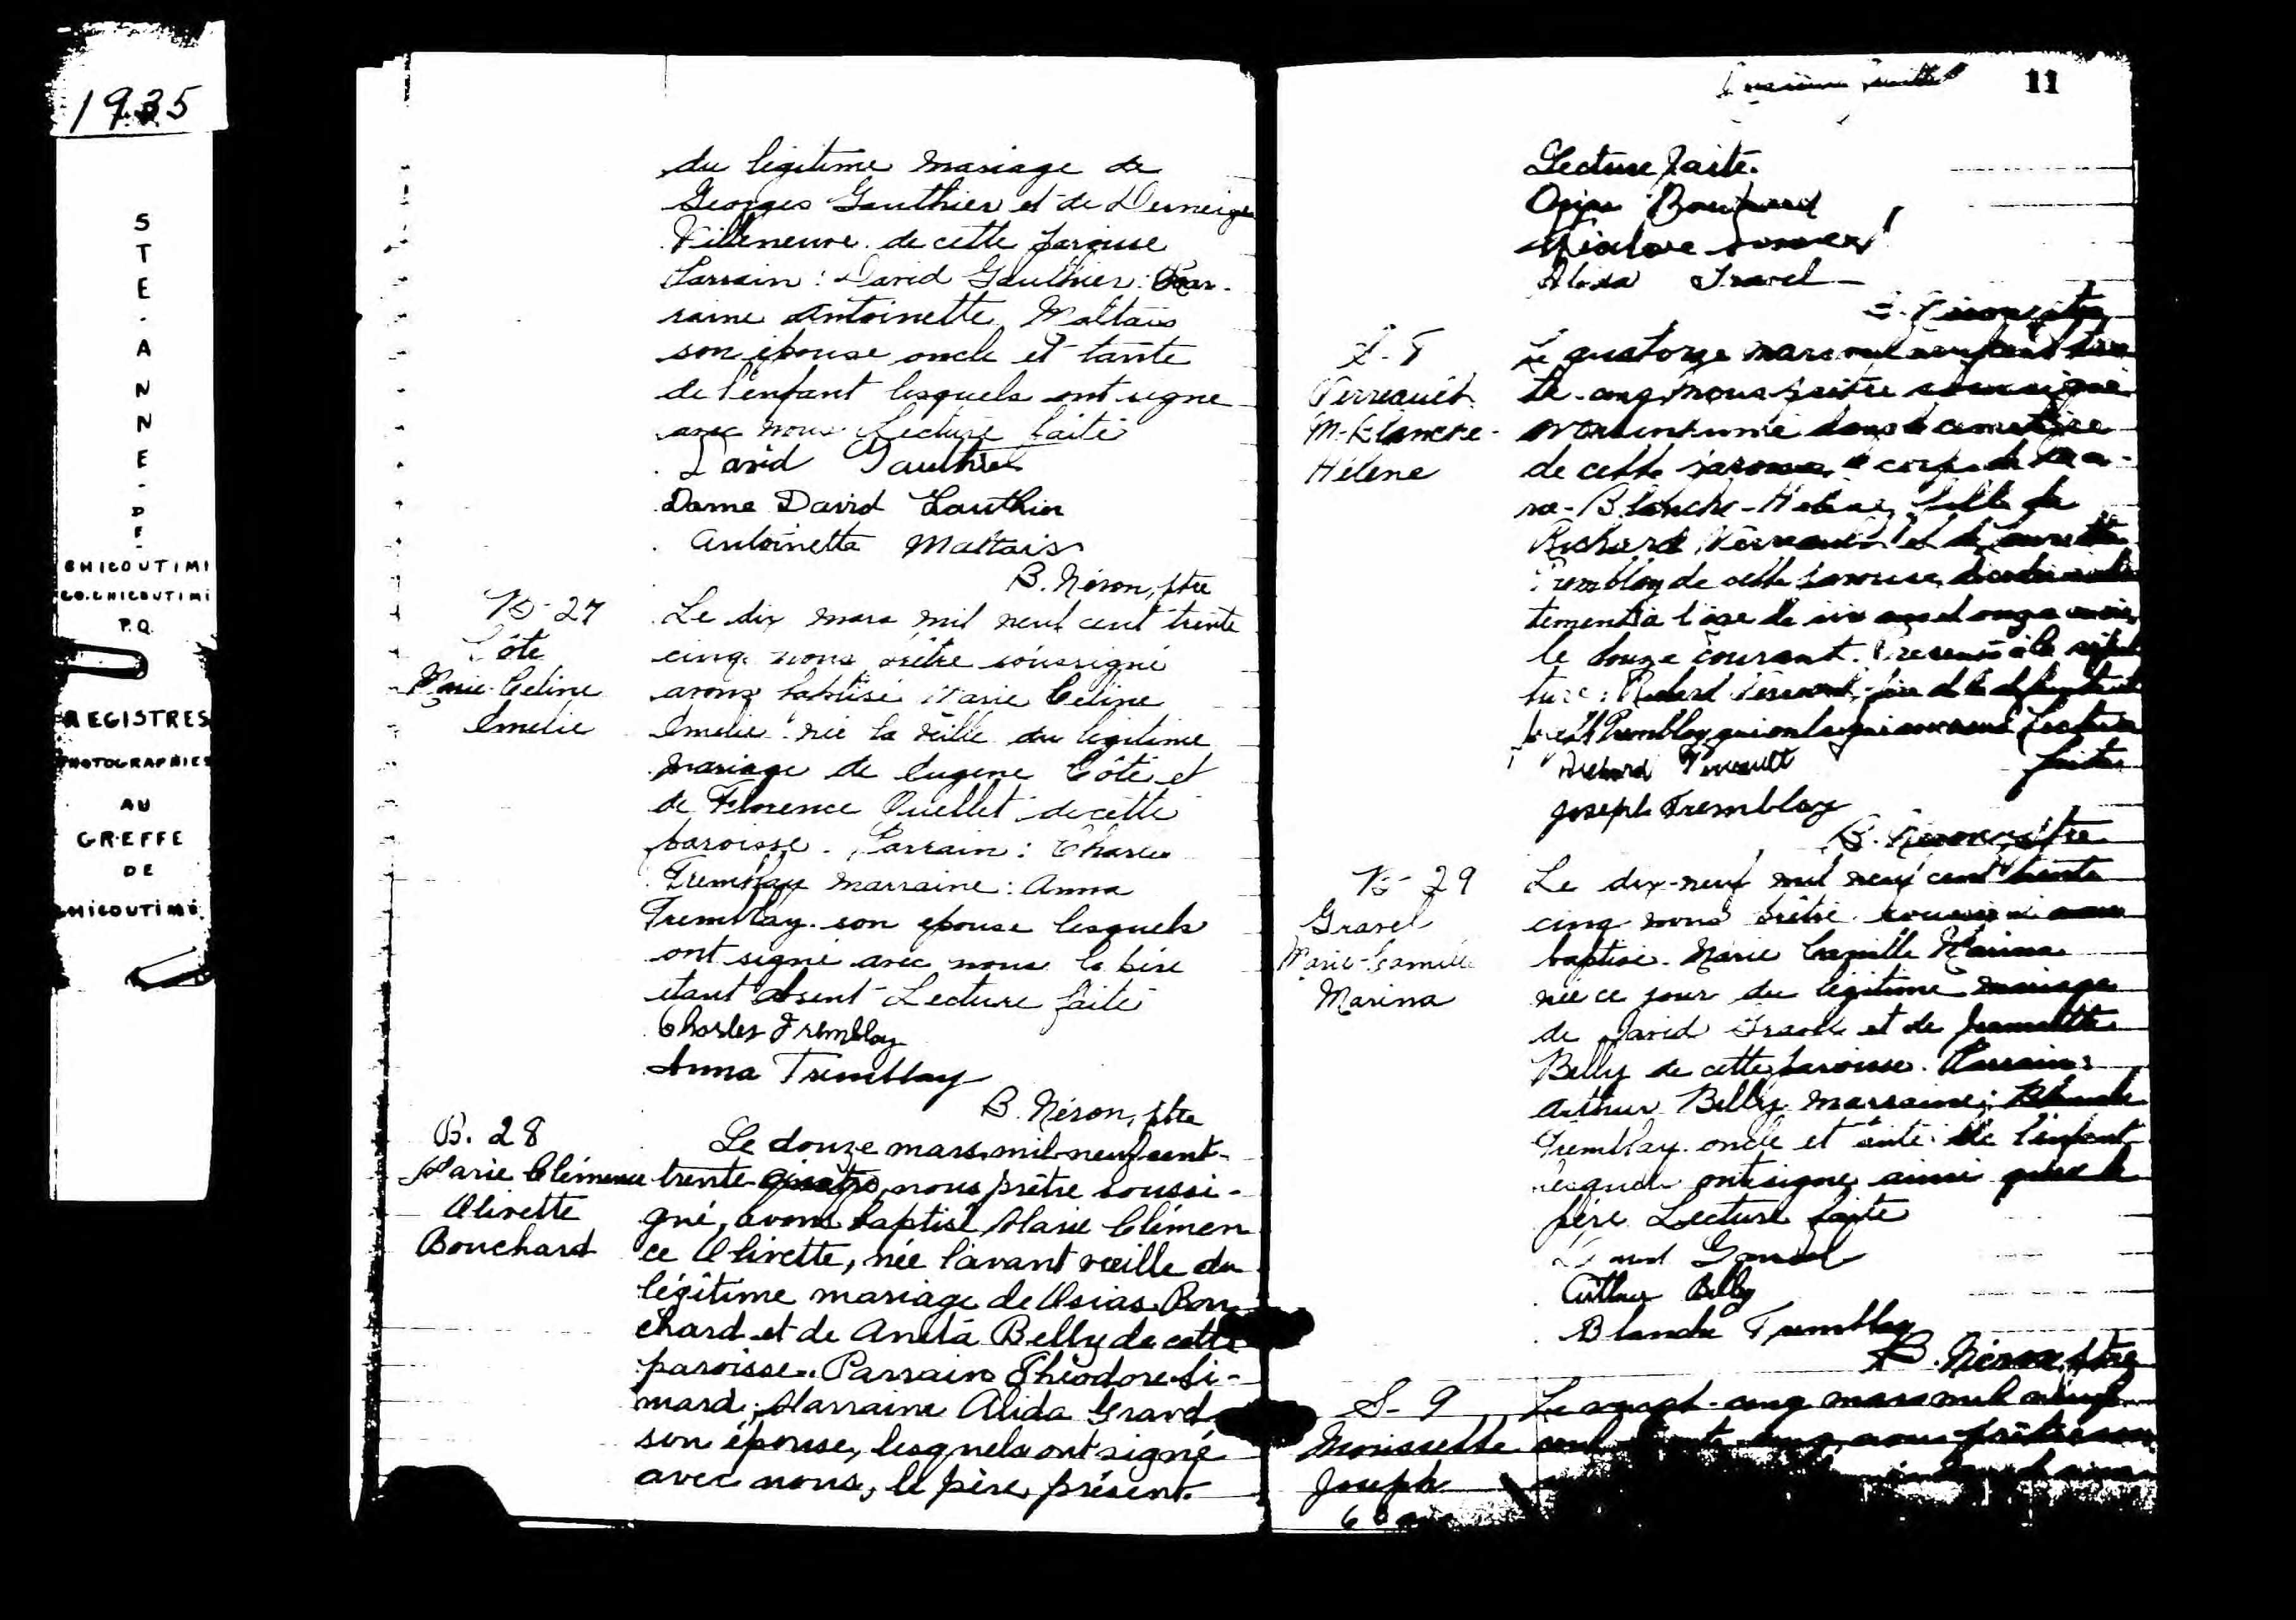 1935
STE-ANNE-DE-
CHICOUTIMI
CO. CHICOUTIMI
P.Q.
REGISTRES
PHOTOGRAPHIES
AU
GREFFE
DE
CHICOUTIMI
du légitime mariage de
Georges Gauthier et de Derneige
Villeneuve de cette paroisse
Parrain: David Gauthier: Mar-
raine Antoinette Maltais
son épouse oncle et tante
de l'enfant lesquels ont signé
avec nous Lecture faite
David Gauthier
Dame David Gauthier
Antoinette Maltais
B. Néron, ptre
B-27
Côté
Marie-Celine
Emelie
Le dix mars mil neuf cent trente
cinq nous prêtre soussigné
avons baptisé Marie Celine
Emelie née la veille du légitime
mariage de Eugene Côté et
de Florence Ouellet de cette
paroisse. Parrain: Charles
Tremblay marraine: Anna
Tremblay son épouse lesquels
ont signé avec nous le père
étant absent Lecture faite
Charles Tremblay
Anna Tremblay
B. Néron, ptre
B. 28
Marie Clémence
Olivette
Bouchard
Le douze mars mil neuf cent-
trente nous prêtre soussi-
gné, avons baptisé Marie Clémen
ce Olivette, née l'avant veille du
légitime mariage de Osias Bou-
chard et de Anita Belly de cette
paroisse. Parrain Théodore Si-
mard; Marraine Alida Gravel
son épouse, lesquels ont signé
avec nous, le père présent.
11
Lecture faite.
Bouchard
Alida Gravel
B. Néron, ptre
S-8
Perreault
M-Blanche-
Hélène
Le quatorze mars mil neuf cent tren
te-cinq nous prêtre soussigné
avons inhumé dans le cimetière
de cette paroisse le corps de Ma-
rie-Blanche-Hélène, fille de
Richard Perreault et de
Tremblay de cette paroisse
tement à l'âge de six ans et onze mois
le douze courant. Présents à la sépul
ture: Richard Perreault, père de la défunte et
Tremblay qui ont signé avec nous Lecture
faite
Richard Perreault
Joseph Tremblay
B. Néron, ptre
B-29
Gravel
Marie-Camille
Marina
Le dix-neuf mil neuf cent trente
cinq nous prêtre soussigné avons
baptisé Marie Camille Marina
née ce jour du légitime mariage
de David Gravel et de Jeannette
Belly de cette paroisse. Parrain:
Arthur Belly marraine: Blanche
Tremblay oncle et tante de l'enfant
lesquels ont signé ainsi que le
père Lecture faite
David Gravel
Arthur Belly
Blanche Tremblay
B. Néron, ptre
S-9
Morissette
Joseph
Le vingt-cinq mars mil neuf
cent trente cinq nous prêtre sou